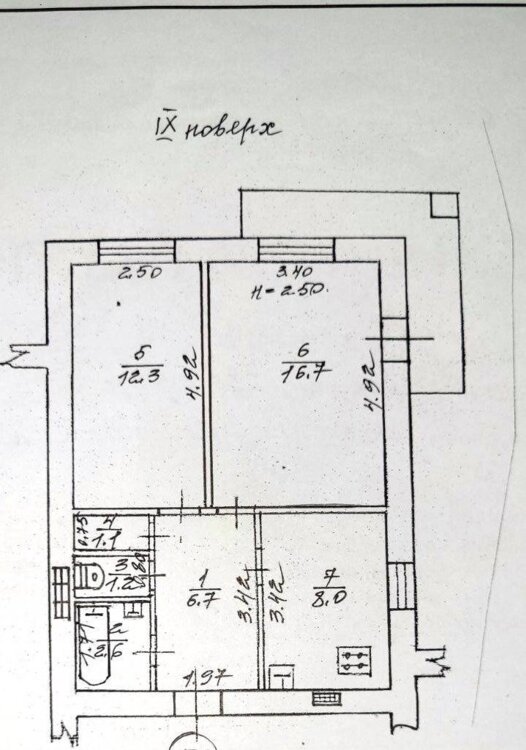 IX поверх
2.50
3.40
H=2.50
5
12.3
4.92
6
16.7
4.92
0.75
4
1.1
3
1.2
1
6.7
3.42
3.42
7
8.0
1.71
2
2.6
1.97